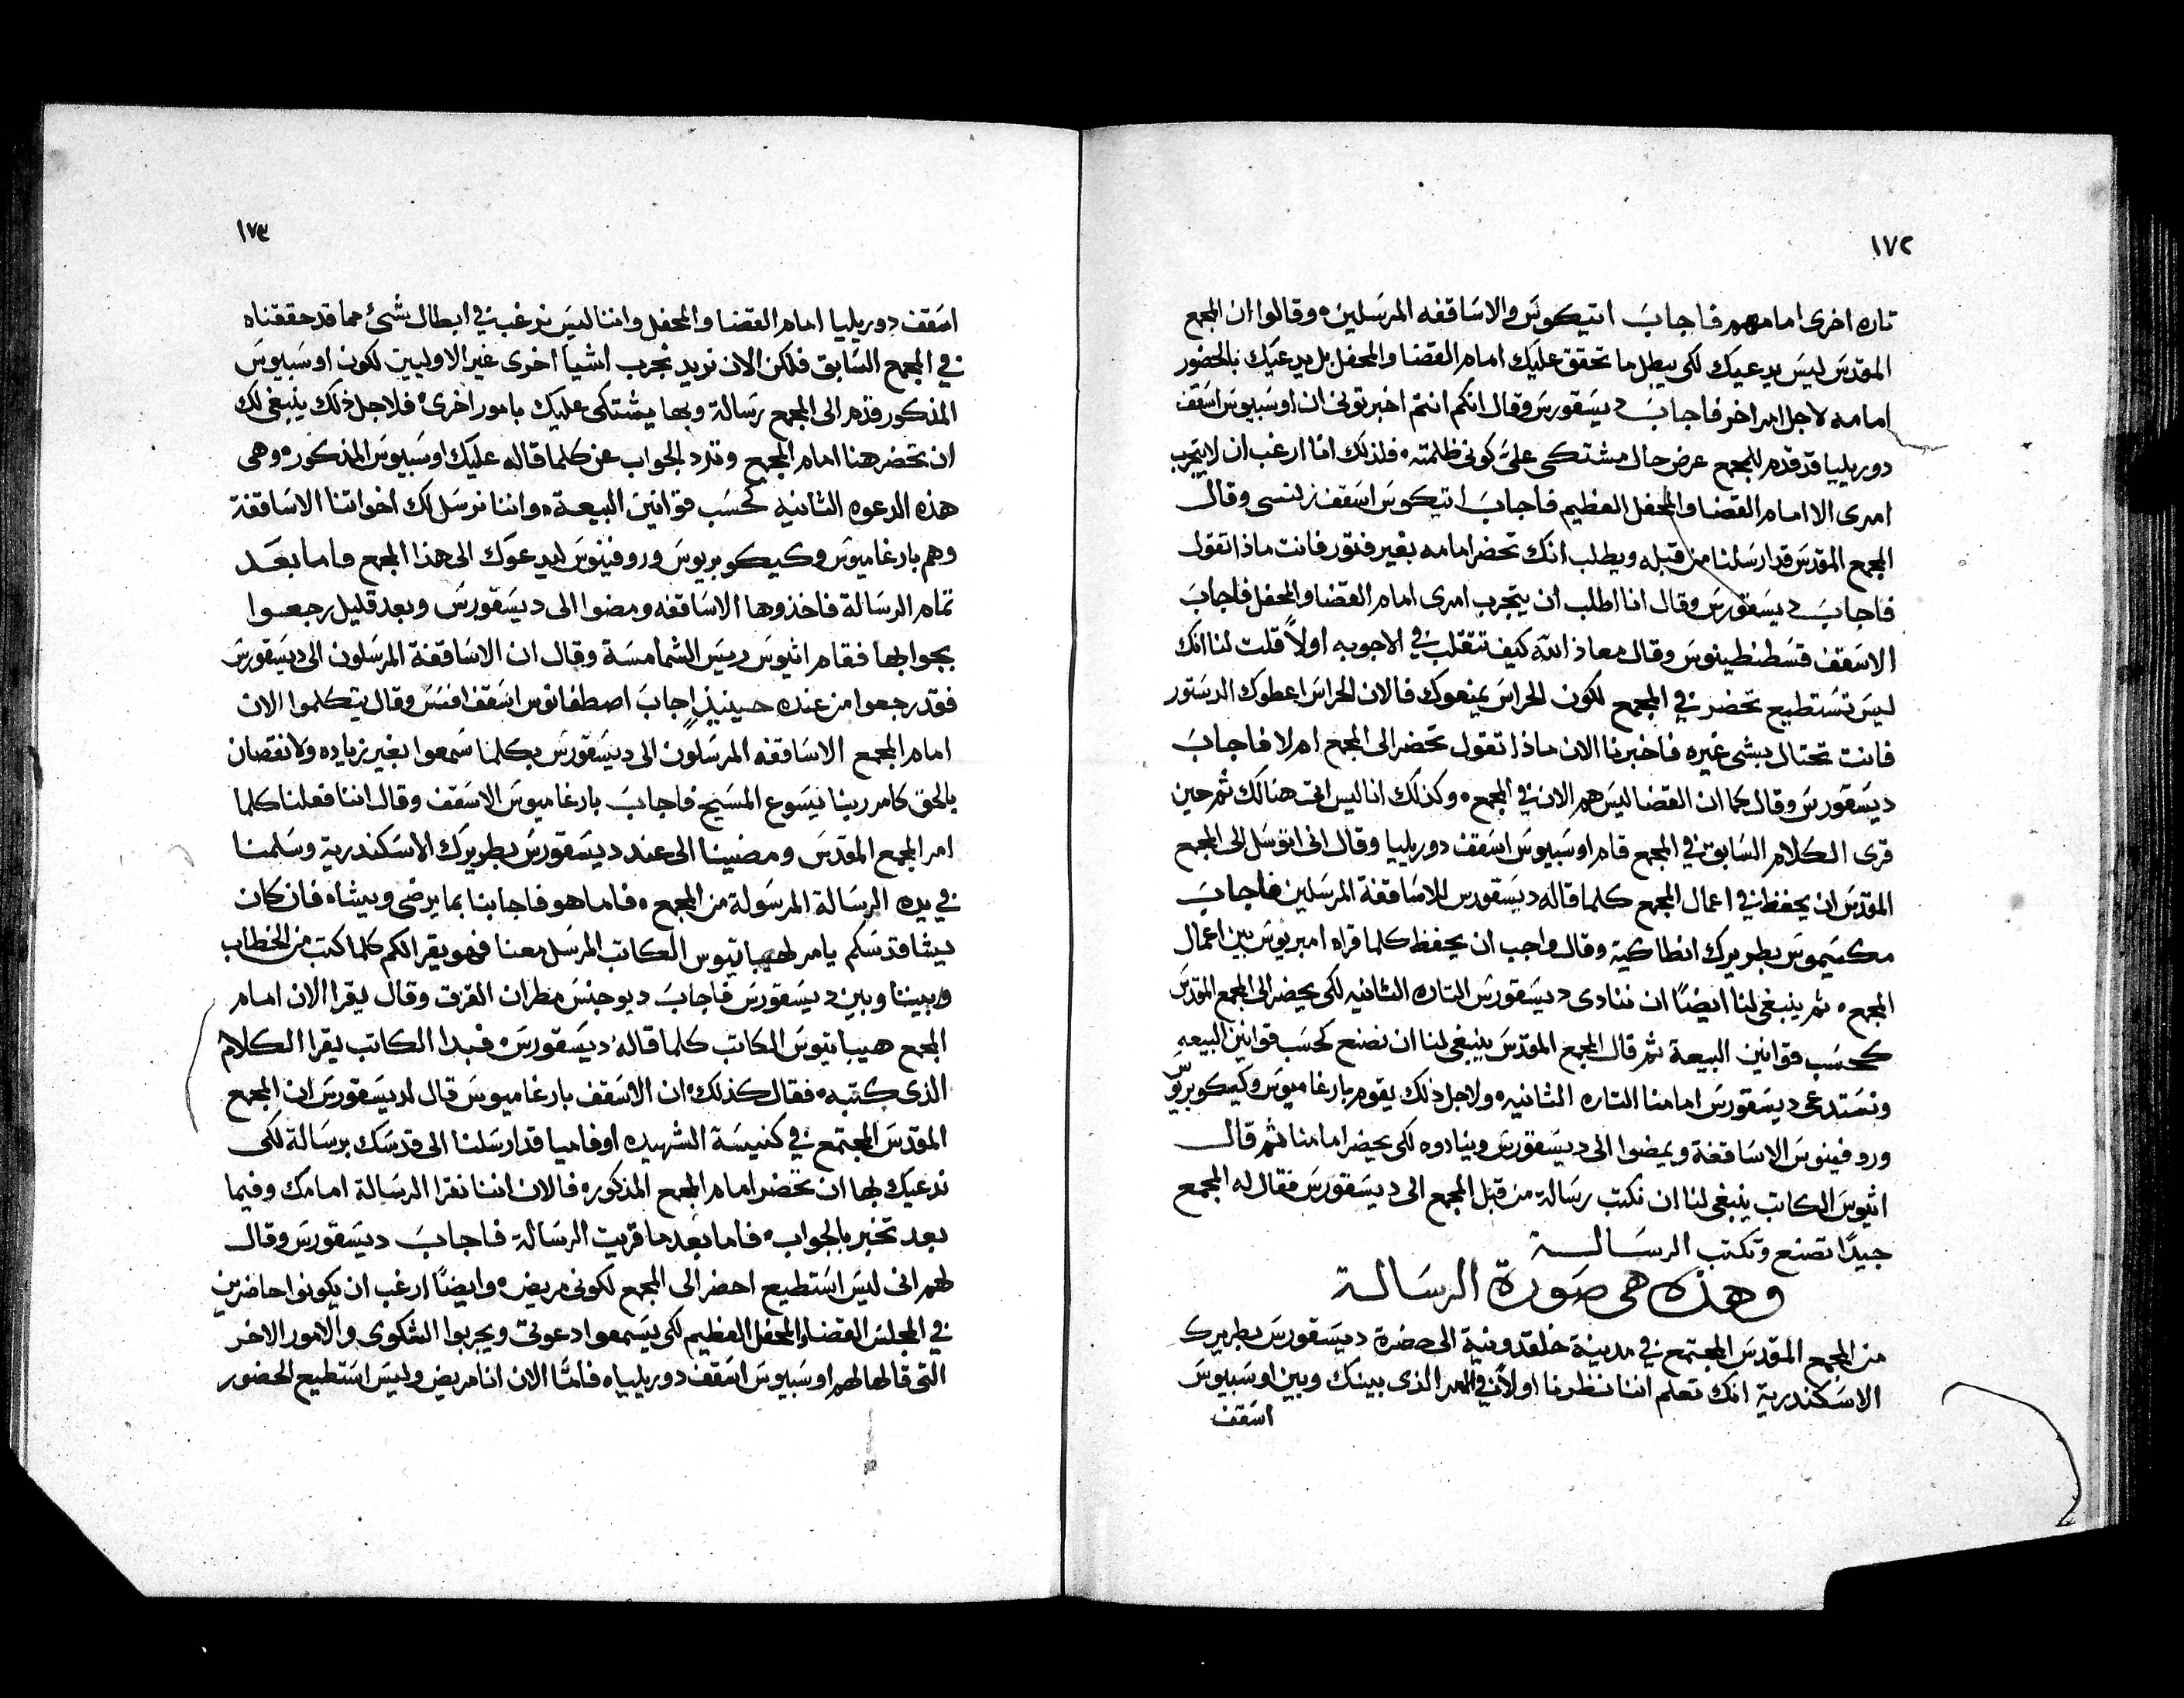 ١٧٢
تاره اخرى امامهم فاجاب اتيكوس والاساقفه المرسلين وقالوا ان المجمع
المقدس ليس يدعيك لكى يبطل ما تحقق عليك امام القضا والمحفل بل يدعيك بالحضور
امامه لاجل امر اخر فاجاب ديسقورس وقال انكم انتم اخبرتونى ان اوسبيوس اسقف
دوريليا قد قدم للمجمع عرض حال مشتكى علىّ كونى ظلمته فلذلك انا ارغب ان لا يتجرب
امرى الا امام القضا والمحفل العظيم فاجاب اتيكوس اسقف زلنسى وقال
المجمع المقدس قد ارسلنا من قبله ويطلب انك تحضر امامه بغير فتور فانت ماذا تقول
فاجاب ديسقورس وقال انا اطلب ان يتجرب امرى امام القضا والمحفل فاجاب
الاسقف قسطنطينوس وقال معاذ الله كيف تتقلب في الاجوبه اولاً قلت لنا انك
ليس تستطيع تحضر في المجمع لكون الحراس يمنعوك فالان الحراس اعطوك الدستور
فانت تحتال بشى غيره فاخبرنا الان ماذا تقول تحضر الى المجمع ام لا فاجاب
ديسقورس وقال كما ان القضا ليس هم الان في المجمع وكذلك انا ليس اتى هنالك ثم حين
قرى الكلام السابق في المجمع قام اوسبيوس اسقف دوريليا وقال انى اتوسل الى المجمع
المقدس ان يحفظ في اعمال المجمع كلما قاله ديسقورس للاساقفة المرسلين فاجاب
مكسيموس بطريرك انطاكية وقال واجب ان يحفظ كلما قراه امبريوس بين اعمال
المجمع ثم ينبغى لنا ايضاً ان ننادى ديسقورس التاره الثانيه لكى يحضر الى المجمع المقدس
كحسب قوانين البيعة ثم قال المجمع المقدس ينبغى لنا ان نصنع كحسب قوانين البيعه
ونستدعى ديسقورس امامنا التاره الثانيه ولاجل ذلك يقوم بارغاميوس وكيكوبريوس
وروفينوس الاساقفة ويمضوا الى ديسقورس وينادوه لكى يحضر امامنا ثم قال
اثيوس الكاتب ينبغى لنا ان نكتب رسالة من قبل المجمع الى ديسقورس فقال له المجمع
جيداً تصنع وتكتب الرسالة
وهذه هى صورة الرسالة
من المجمع المقدس المجتمع في مدينة خلقدونية الى حضرة ديسقورس بطريرك
الاسكندرية انك تعلم اننا نظرنا اولاً في الامر الذى بينك وبين اوسبيوس
اسقف
١٧٣
اسقف دوريليا امام القضا والمحفل واننا ليس نرغب في ابطال شئ مما قد حققناه
في المجمع السابق فلكن الان نريد نجرب اشيا اخرى غير الاوليين لكون اوسبيوس
المذكور قدم الى المجمع رسالة وبها يشتكى عليك بامور اخرى فلاجل ذلك ينبغى لك
ان تحضر هنا امام المجمع وترد الجواب عن كلما قاله عليك اوسبيوس المذكور وهى
هذه الدعوه الثانيه كحسب قوانين البيعة واننا نرسل لك اخواتنا الاساقفة
وهم بارغاميوس وكيكوبريوس وروفينوس ليدعوك الى هذا المجمع فاما بعد
تمام الرسالة فاخذوها الاساقفه ومضوا الى ديسقورس وبعد قليل رجعوا
بجوابها فقام اثيوس رييس الشمامسة وقال ان الاساقفة المرسلون الى ديسقورس
فقد رجعوا من عنده حينيذٍ اجاب اصطفانوس اسقف افسس وقال يتكلموا الان
امام المجمع الاساقفه المرسلون الى ديسقورس بكلما سمعوا بغير زياده ولا نقصان
بالحق كامر ربنا يسوع المسيح فاجاب بارغاميوس الاسقف وقال اننا فعلنا كلما
امر المجمع المقدس ومضينا الى عند ديسقورس بطريرك الاسكندرية وسلمنا
في يده الرسالة المرسولة من المجمع فاما هو فاجابنا بما يرضى ويشاه فان كان
يشا قدسكم يامر لهيباتيوس الكاتب المرسل معنا فهو يقرا لكم كلما كتب من الخطاب
وبيننا وبين ديسقورس فاجاب ديوجنس مطران القزق وقال ليقرا الان امام
المجمع هيباتيوس الكاتب كلما قاله ديسقورس فبدا الكاتب يقرا الكلام
الذى كتبه فقال كذلك ان الاسقف بارغاميوس قال لديسقورس ان المجمع
المقدس المجتمع في كنيسة الشهيده اوفاميا قد ارسلنا الى قدسك برسالة لكى
ندعيك بها ان تحضر امام المجمع المذكور فالان اننا نقرا الرسالة امامك وفيما
بعد تخبر بالجواب فاما بعد ما قريت الرسالة فاجاب ديسقورس وقال
لهم انى ليس استطيع احضر الى المجمع لكونى مريض وايضاً ارغب ان يكونوا حاضرين
في المجلس القضا والمحفل العظيم لكى يسمعوا دعوتى ويجربوا الشكوى والامور الاخر
التى قالها لهم اوسبيوس اسقف دوريلياه فامّا الان انا مريض وليس استطيع الحضور